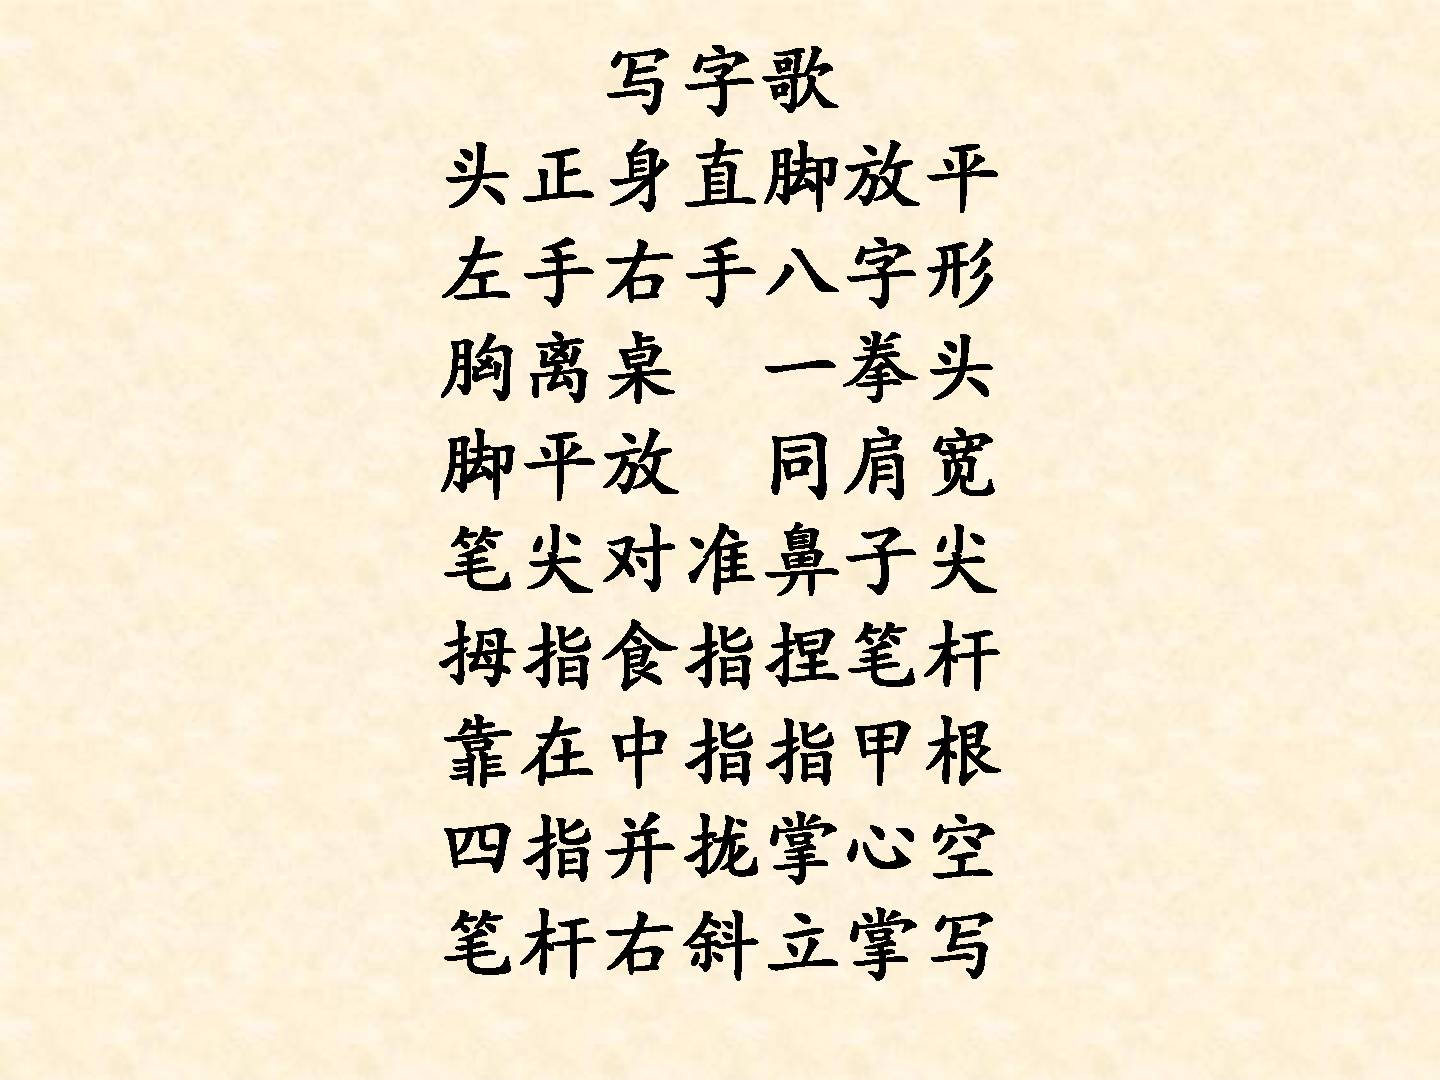 写字歌
头正身直脚放平
左手右手八字形
胸离桌　一拳头
脚平放　同肩宽
笔尖对准鼻子尖
拇指食指捏笔杆
靠在中指指甲根
四指并拢掌心空
笔杆右斜立掌写